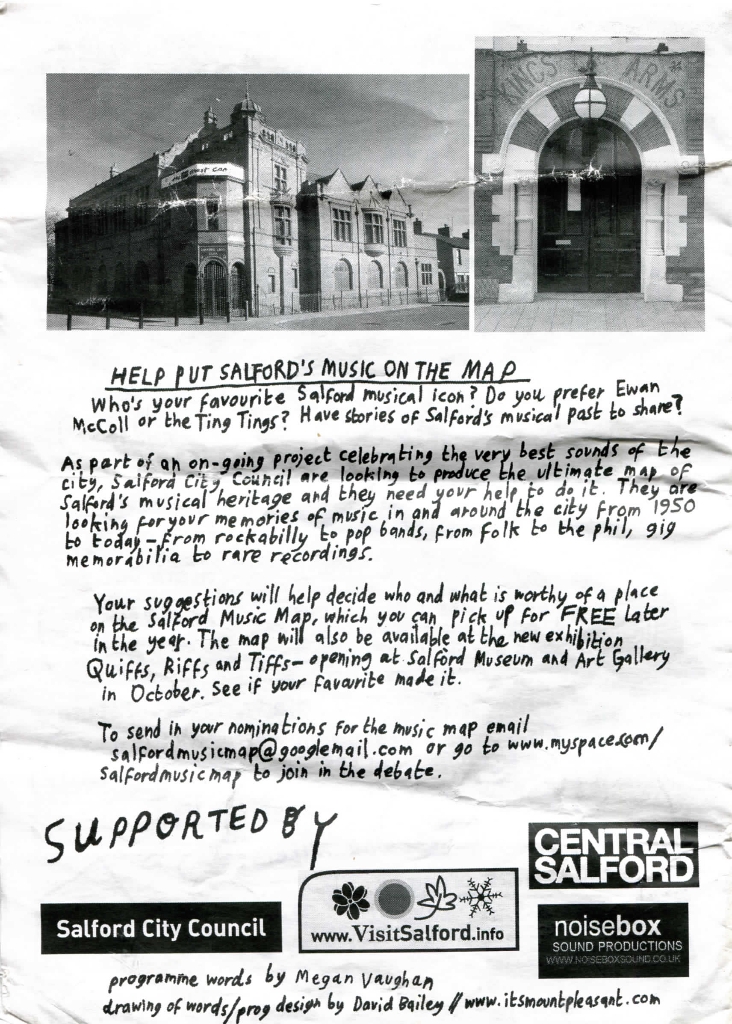 KINGS ARMS
HELP PUT SALFORD'S MUSIC ON THE MAP
Who's your favourite Salford musical icon? Do you prefer Ewan
McColl or the Ting Tings? Have stories of Salford's musical past to share?
As part of an on-going project celebrating the very best sounds of the
city, Salford City Council are looking to produce the ultimate map of
Salford's musical heritage and they need your help to do it. They are
looking for your memories of music in and around the city from 1950
to today - from rockabilly to pop bands, from folk to the phil, gig
memorabilia to rare recordings.
Your suggestions will help decide who and what is worthy of a place
on the Salford Music Map, which you can pick up for FREE later
in the year. The map will also be available at the new exhibition
Quiffs, Riffs and Tiffs - opening at Salford Museum and Art Gallery
in October. See if your favourite made it.
To send in your nominations for the music map email
salfordmusicmap@googlemail.com or go to www.myspace.com/
salfordmusicmap to join in the debate.
SUPPORTED BY
CENTRAL
SALFORD
Salford City Council
www.VisitSalford.info
noisebox
SOUND PRODUCTIONS
WWW.NOISEBOXSOUND.CO.UK
programme words by Megan Vaughan
drawing of words/prog design by David Bailey // www.itsmountpleasant.com